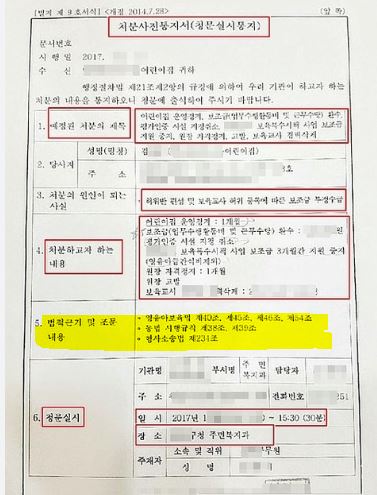 [별지 제9호서식] <개정 2014.7.28> (앞 쪽)
처분사전통지서(청문실시통지)
문서번호
시 행 일 2017.
수 신 어린이집 귀하
행정절차법 제21조제2항의 규정에 의하여 우리 기관이 하고자 하는
처분의 내용을 통지하오니 청문에 출석하여 주시기 바랍니다.
1. 예정된 처분의 제목
어린이집 운영정지, 보조금(업무수행활동비 및 근무수당) 환수,
평가인증 시설 지정취소, 보육특수시책 사업 보조금
지원 중지, 원장 자격정지, 고발, 보육교사 겸비삭제
2. 당사자
성명(명칭) 김 어린이집)
주 소 8호
3. 처분의 원인이 되는
사실
허위반 편성 및 보육교사 허위 등록에 따른 보조금 부정수급
4. 처분하고자 하는
내용
어린이집 운영정지 : 1개월
보조금(업무수행활동비 및 근무수당) 환수 : 원
평가인증 시설 지정 취소
보육특수시책 사업 보조금 3개월간 지원 중지
(영유아급간식비제외)
원장 자격정지 : 1개월
원장 고발
보육교사 삭제 :
5. 법적근거 및 조문
내용
• 영유아보육법 제40조, 제45조, 제46조, 제54조
• 동법 시행규칙 제38조, 제39조
• 형사소송법 제234조
6. 청문실시
기관명 부서명 주민
복지과 담당자
주 소 전화번호 251
일 시 2017년 1 ~ 15:30 (30분)
장 소 구청 주민복지과
주재자 소속 및 직위 무원
성 명